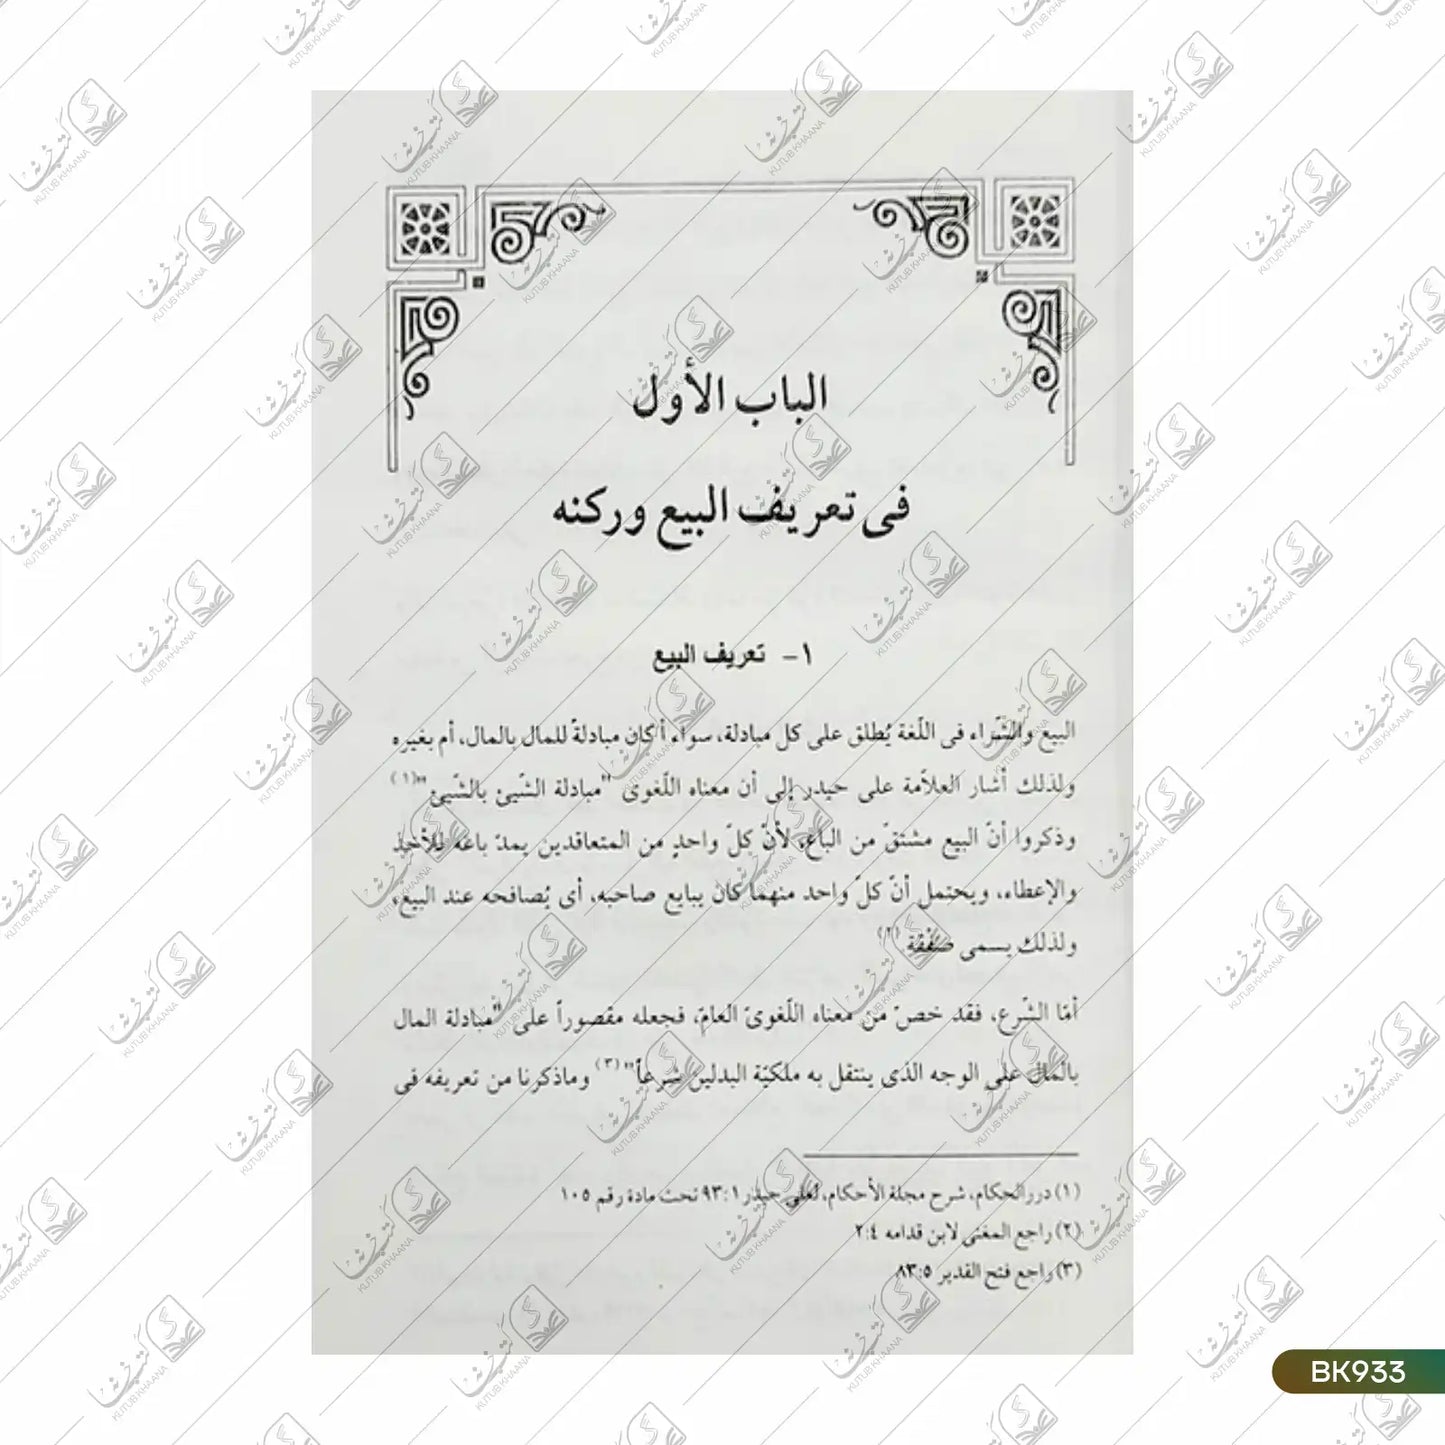 الباب الأول
فى تعريف البيع وركنه
١- تعريف البيع
البيع والشّراء فى اللّغة يُطلق على كل مبادلة، سواء أكان مبادلةً للمال بالمال، أم بغيره
ولذلك أشار العلاّمة على حيدر إلى أن معناه اللّغوىّ "مبادلة الشّيئ بالشّيئ"(١)
وذكروا أنّ البيع مشتقّ من الباع، لأنّ كلّ واحدٍ من المتعاقدين يمدّ باعَه للأخذ
والإعطاء، ويحتمل أنّ كلّ واحد منهما كان يبايع صاحبه، أى يُصافحه عند البيع،
ولذلك يسمى صَفْقَة (٢)
أمّا الشّرع، فقد خصّ من معناه اللّغوىّ العامّ، فجعله مقصوراً على "مبادلة المال
بالمال على الوجه الذى ينتقل به ملكيّة البدلين شرعاً"(٣) وماذكرنا من تعريفه فى
(١) دررالحكام، شرح مجلة الأحكام، لعلى حيدر ٩٣:١ تحت مادة رقم ١٠٥
(٢) راجع المغنى لابن قدامه ٢:٤
(٣) راجع فتح القدير ٨٣:٥
BK933
KUTUB KHAANA